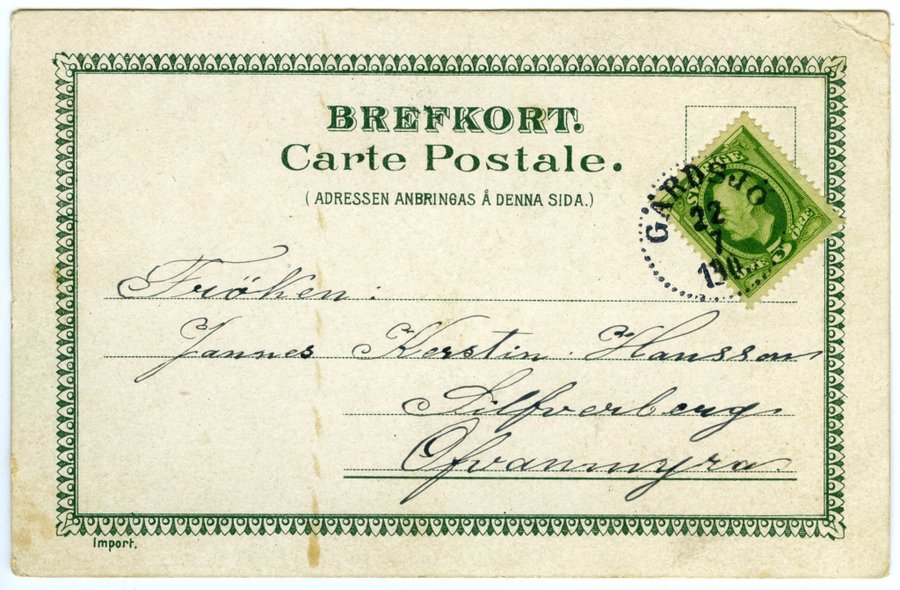 BREFKORT.
Carte Postale.
(ADRESSEN ANBRINGAS Å DENNA SIDA.)
SVERIGE
5 ÖRE
GÅRDSJÖ
22
7
Fröken:
Jannes Kerstin Hansson
Silfverberg
Ofvanmyra
Import.